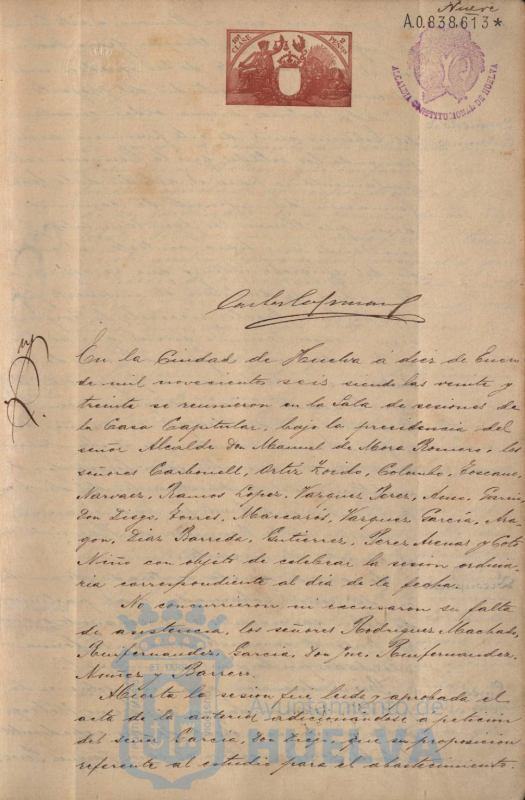 Nueve
A.0.838.613*
11ª CLASE
2 PESETAS
ALCALDIA CONSTITUCIONAL DE HUELVA
En la Ciudad de Huelva á diez de Enero
de mil novecientos seis, siendo las veinte y
treinta se reunieron en la Sala de sesiones de
la Casa Capitular, bajo la presidencia del
señor Alcalde Don Manuel de Mora Romero, los
señores Carbonell, Ortiz Zoido, Colombo, Toscano,
Narvaez, Ramos Lopez, Vazquez Perez, Garcia
Don Diego, Torres, Mascarós, Vazquez García, Ara-
gon, Diaz Barreda, Gutierrez, Perez Asensio y Coto
Niño con objeto de celebrar la sesion ordina-
ria correspondiente al dia de la fecha.
No concurrieron ni excusaron su falta
de asistencia, los señores Rodriguez Machado,
Renfernandez, Garcia, Don José, Renfernandez,
Nuñez y Barrero.
Abierta la sesion fué leida y aprobada el
acta de la anterior adicionandose á peticion
del señor Garcia Don Diego que su proposicion
referente al estudio para el abastecimiento
Ayuntamiento de
HUELVA